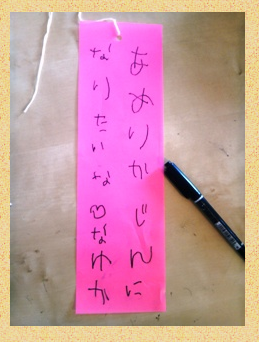 あめりかじんに
なりたいな☺なゆか